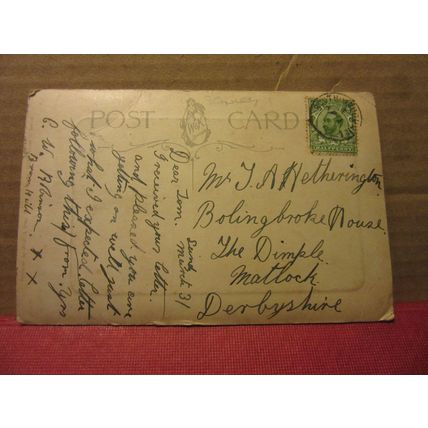 POST CARD
HALFPENNY
Mr T. A Hetherington
Bolingbroke House
The Dimple
Matlock
Derbyshire
Sunday
March 31
Dear Tom.
I received your letter
and pleased you are
getting on well just
what I expected letter
following this from yrs
C. W. Robinson x x